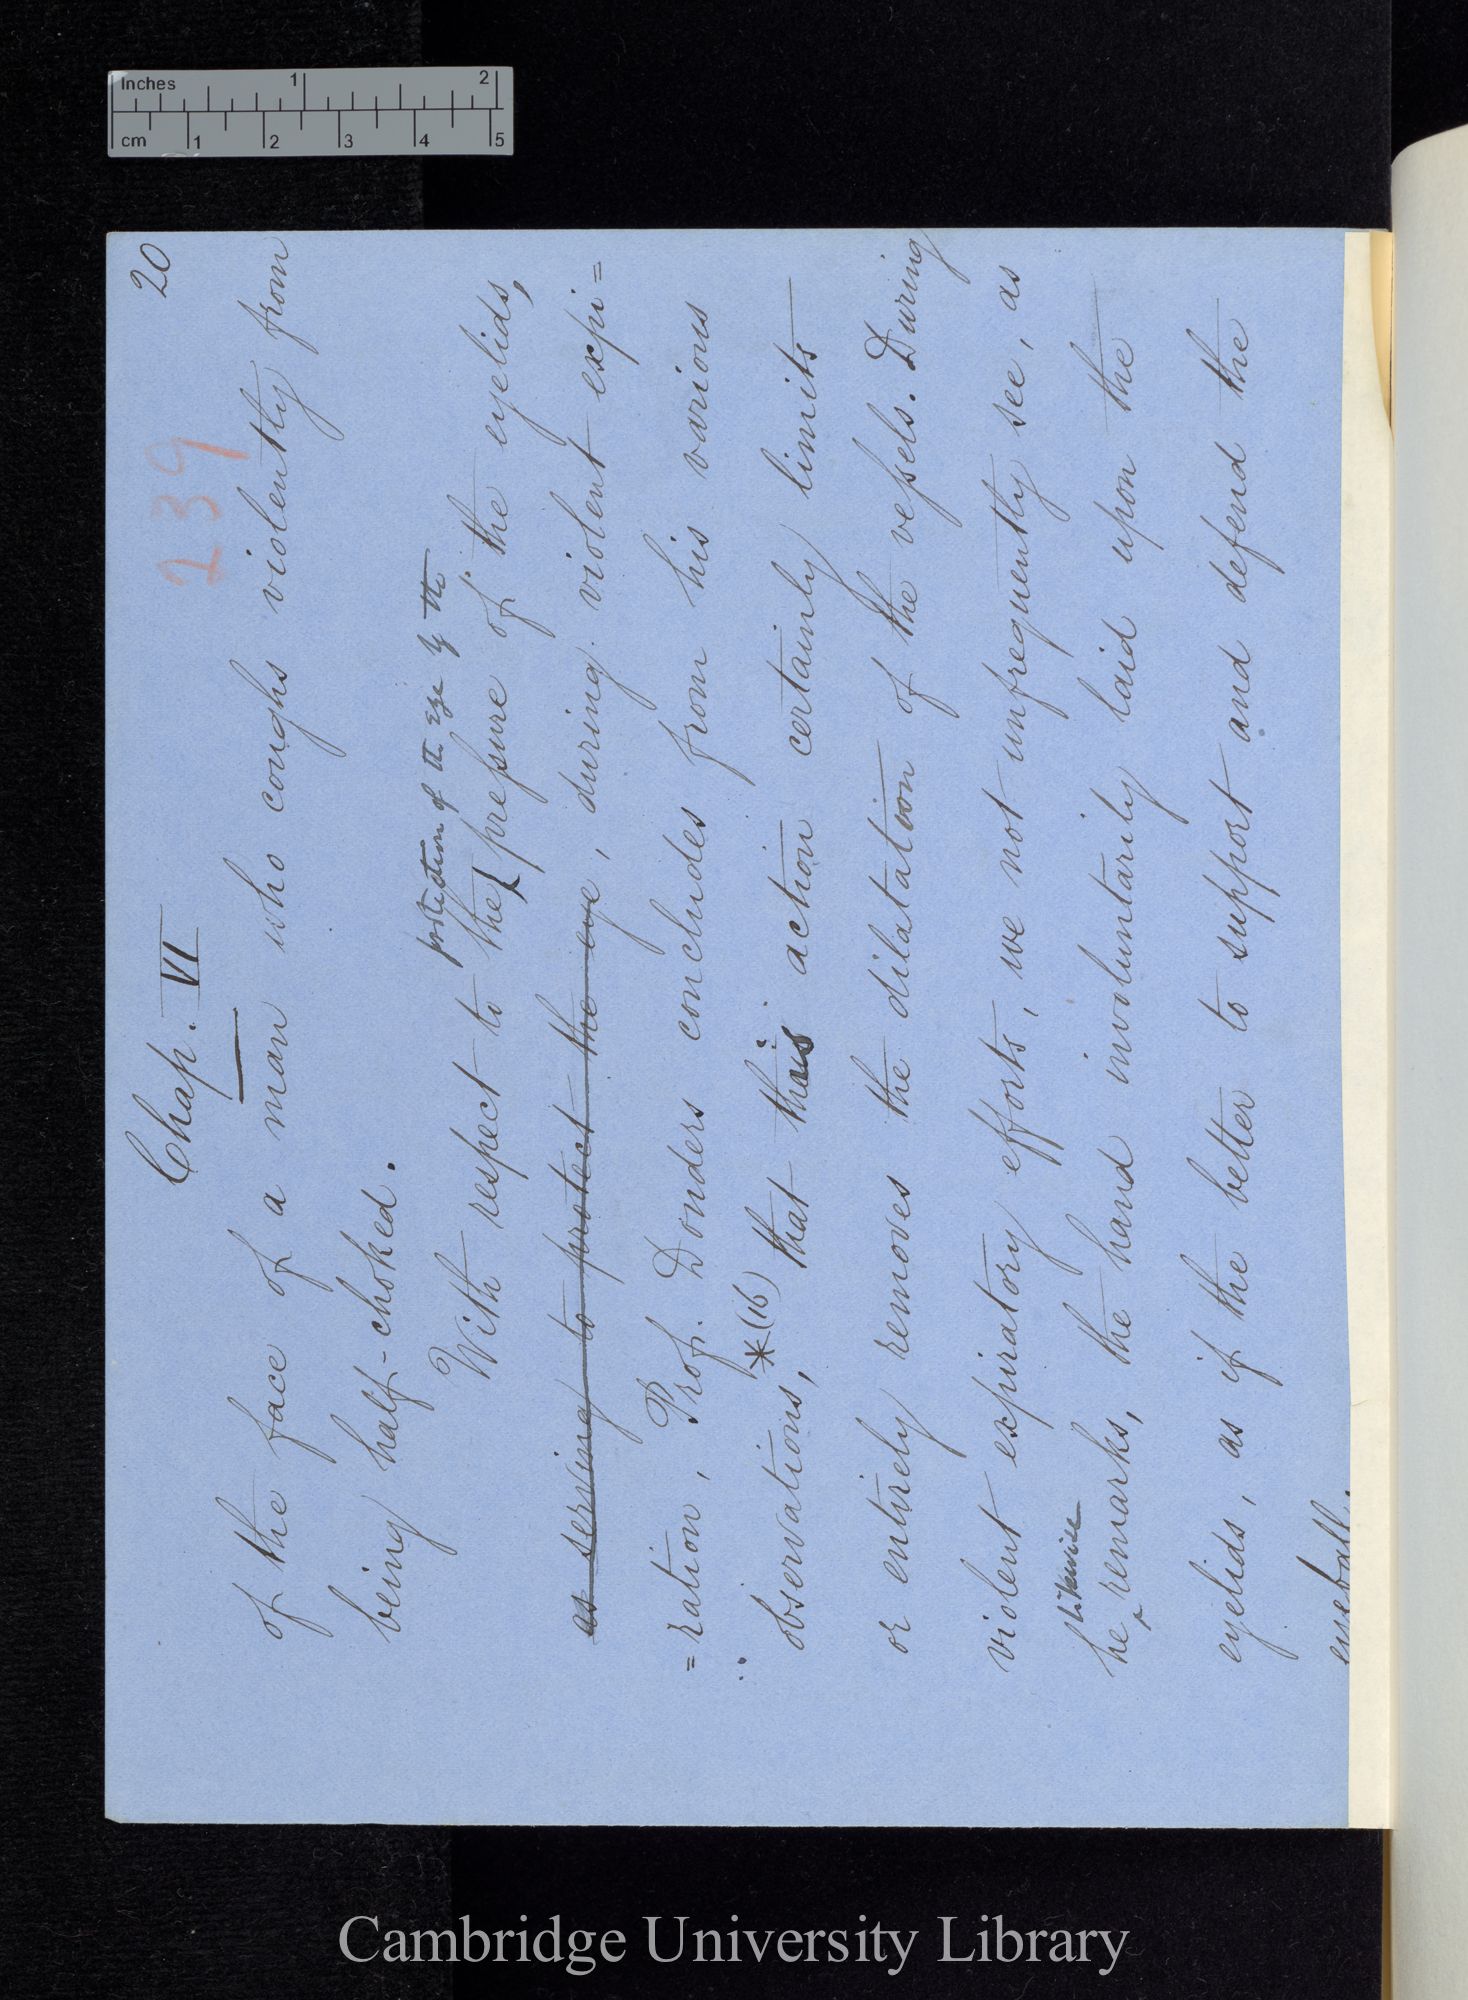 Inches 1 2
cm 1 2 3 4 5
20
239
Chap. VI
of the face of a man who coughs violently from
being half-choked.
protection of the eye by the
With respect to the pressure of the eyelids,
as serving to protect the eye, during violent expi=
=ration, Prof. Donders concludes from his various
*(16)
observations, that this action certainly limits
or entirely removes the dilatation of the vessels. During
violent expiratory efforts, we not unfrequently see, as
likewise
he remarks, the hand involuntarily laid upon the
eyelids, as if the better to support and defend the
eyeball.
Cambridge University Library